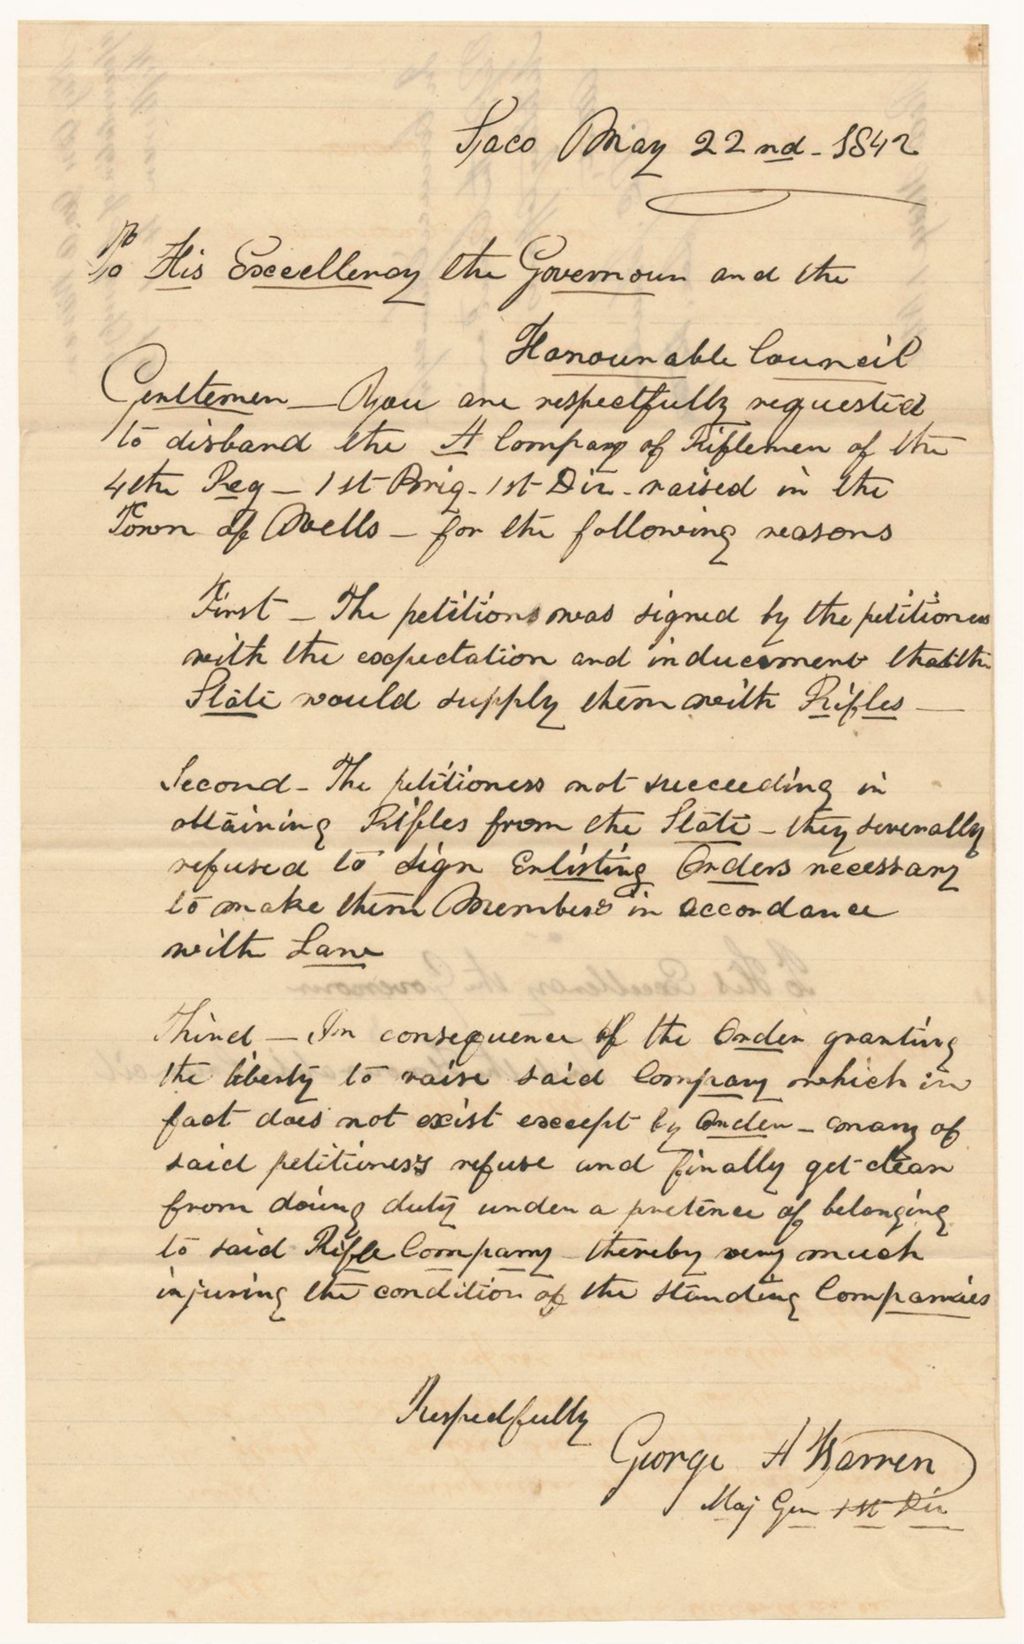 Saco May 22nd - 1842
To His Excellency the Governour and the
Honourable Council
Gentlemen — You are respectfully requested
to disband the A Company of Riflemen of the
4the Reg — 1st Brig - 1st Div - raised in the
Town of Wells — for the following reasons
First — The petitions was signed by the petitioners
with the expectation and inducement that the
State would supply them with Rifles —
Second - The petitioners not succeeding in
obtaining Rifles from the State - they severally
refused to sign Enlisting Orders necessary
to make them Members in accordance
with Law
Third — In consequence of the Order granting
the liberty to raise said Company which in
fact does not exist except by Order — many of
said petitioners refuse and finally get clear
from doing duty under a pretence of belonging
to said Rifle Company thereby very much
injuring the condition of the standing Companies
Respectfully
George A Warren
Maj Gen 1st Div